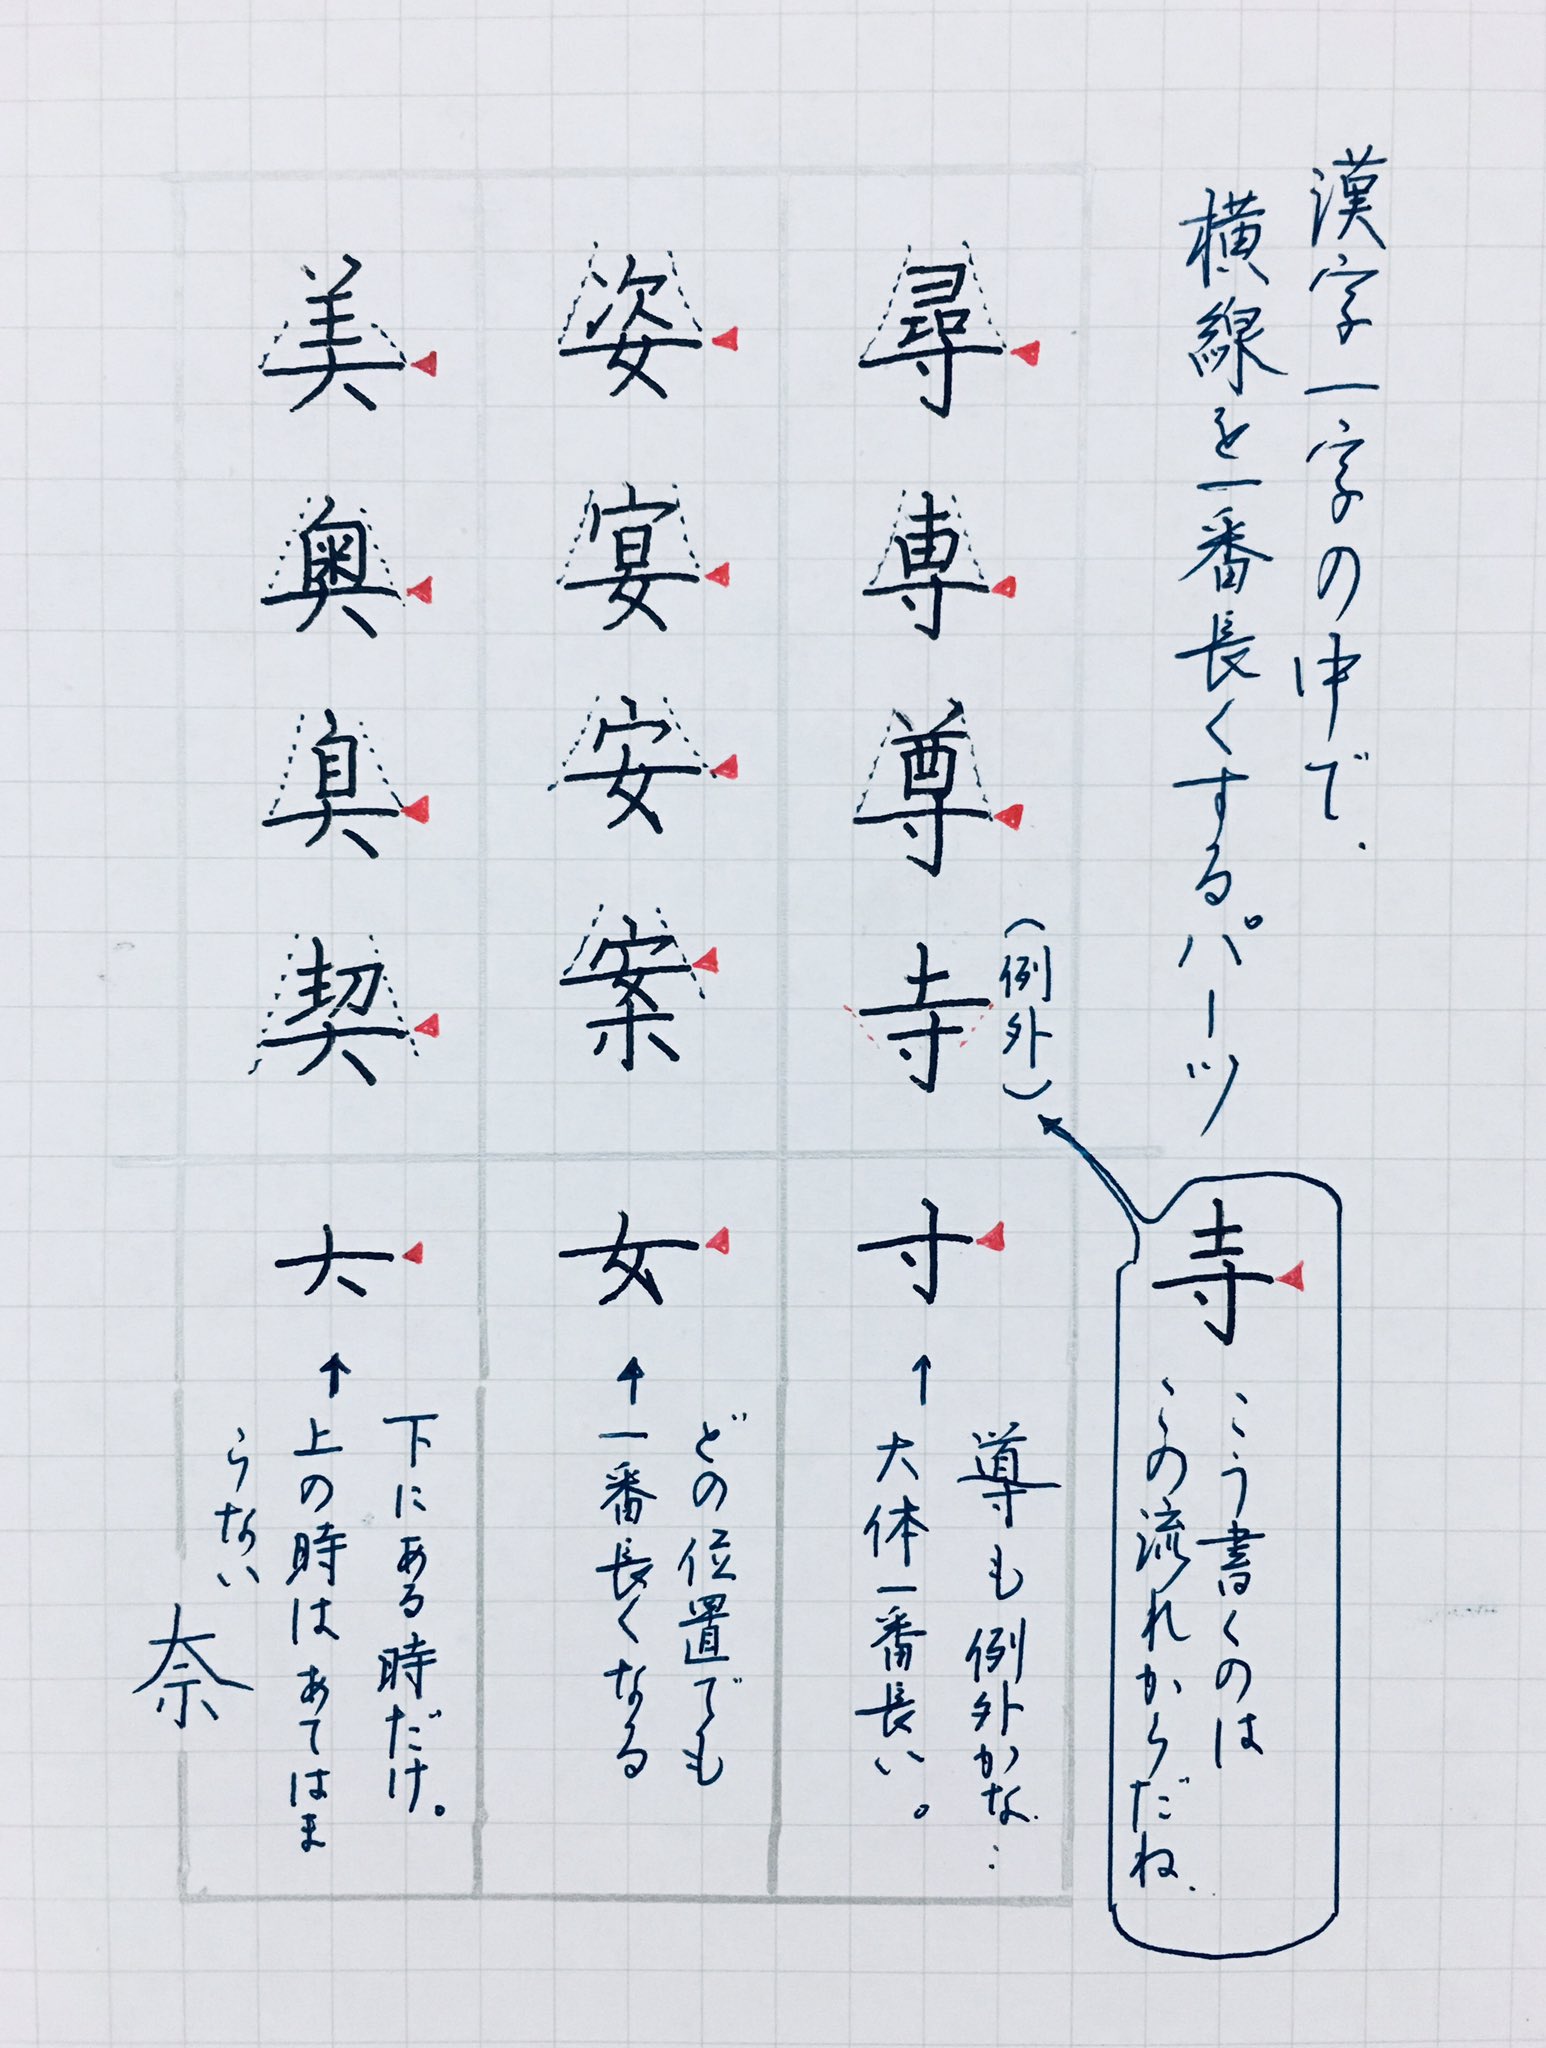 漢字一字の中で、
横線を一番長くするパーツ
尋
専
尊
寺
(例外)
姿
宴
安
案
美
奥
具
契
寺
こう書くのは
この流れからだね。
寸
↑
導も例外かな…
大体一番長い。
女
↑
どの位置でも
一番長くなる
大
↑
下にある時だけ。
上の時はあてはま
らない
奈